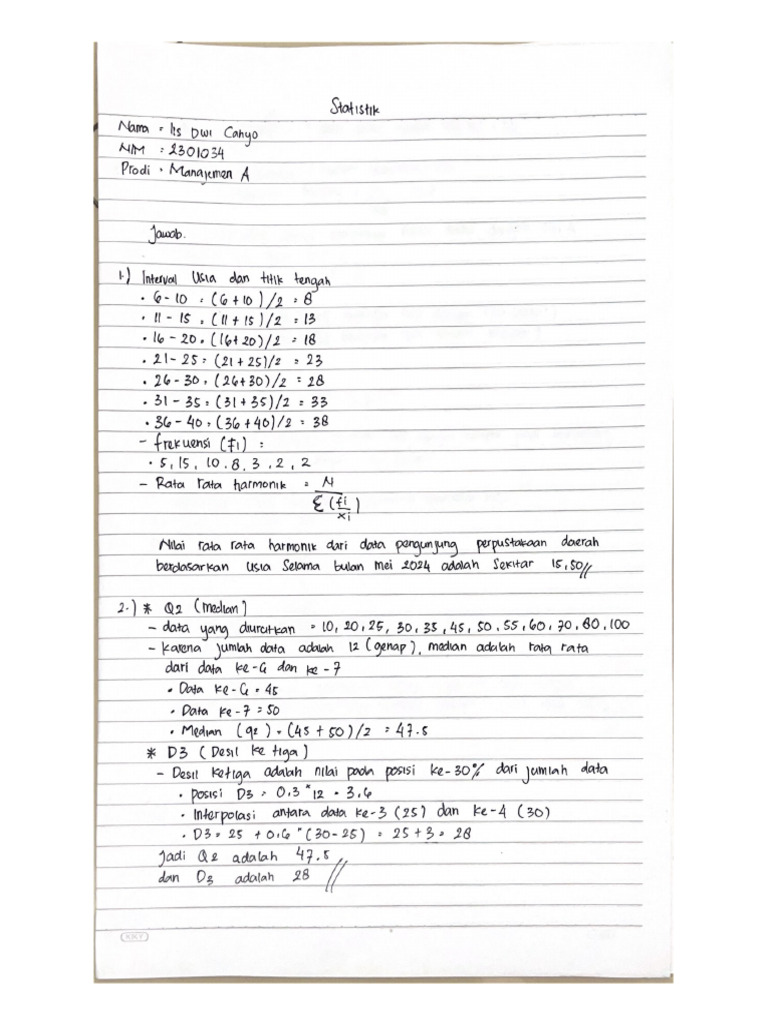 Statistik
Nama = Iis Dwi Cahyo
NIM : 2301034
Prodi • Manajemen A
Jawab.
1.) Interval Usia dan titik tengah
• 6 - 10 = (6 + 10) / 2 = 8
• 11 - 15 = (11 + 15) / 2 = 13
• 16 - 20 = (16 + 20) / 2 = 18
• 21 - 25 = (21 + 25) / 2 = 23
• 26 - 30 = (26 + 30) / 2 = 28
• 31 - 35 = (31 + 35) / 2 = 33
• 36 - 40 = (36 + 40) / 2 = 38
- frekuensi (fi) :
• 5, 15, 10, 8, 3, 2, 2
- Rata rata harmonik = N
Σ (fi
xi)
Nilai rata rata harmonik dari data pengunjung perpustakaan daerah
berdasarkan usia selama bulan mei 2024 adalah sekitar 15,50//
2.) * Q2 (median)
- data yang diurutkan = 10, 20, 25, 30, 35, 45, 50, 55, 60, 70, 80, 100
- karena jumlah data adalah 12 (genap), median adalah rata rata
dari data ke-6 dan ke-7
• Data ke-6 = 45
• Data ke-7 = 50
• Median (q2) = (45 + 50) / 2 = 47.5
* D3 (Desil ke tiga)
- Desil ketiga adalah nilai pada posisi ke-30% dari jumlah data
• posisi D3 = 0.3 * 12 = 3.6
• Interpolasi antara data ke-3 (25) dan ke-4 (30)
• D3 = 25 + 0.6 * (30-25) = 25 + 3 = 28
Jadi Q2 adalah 47.5
dan D3 adalah 28 //